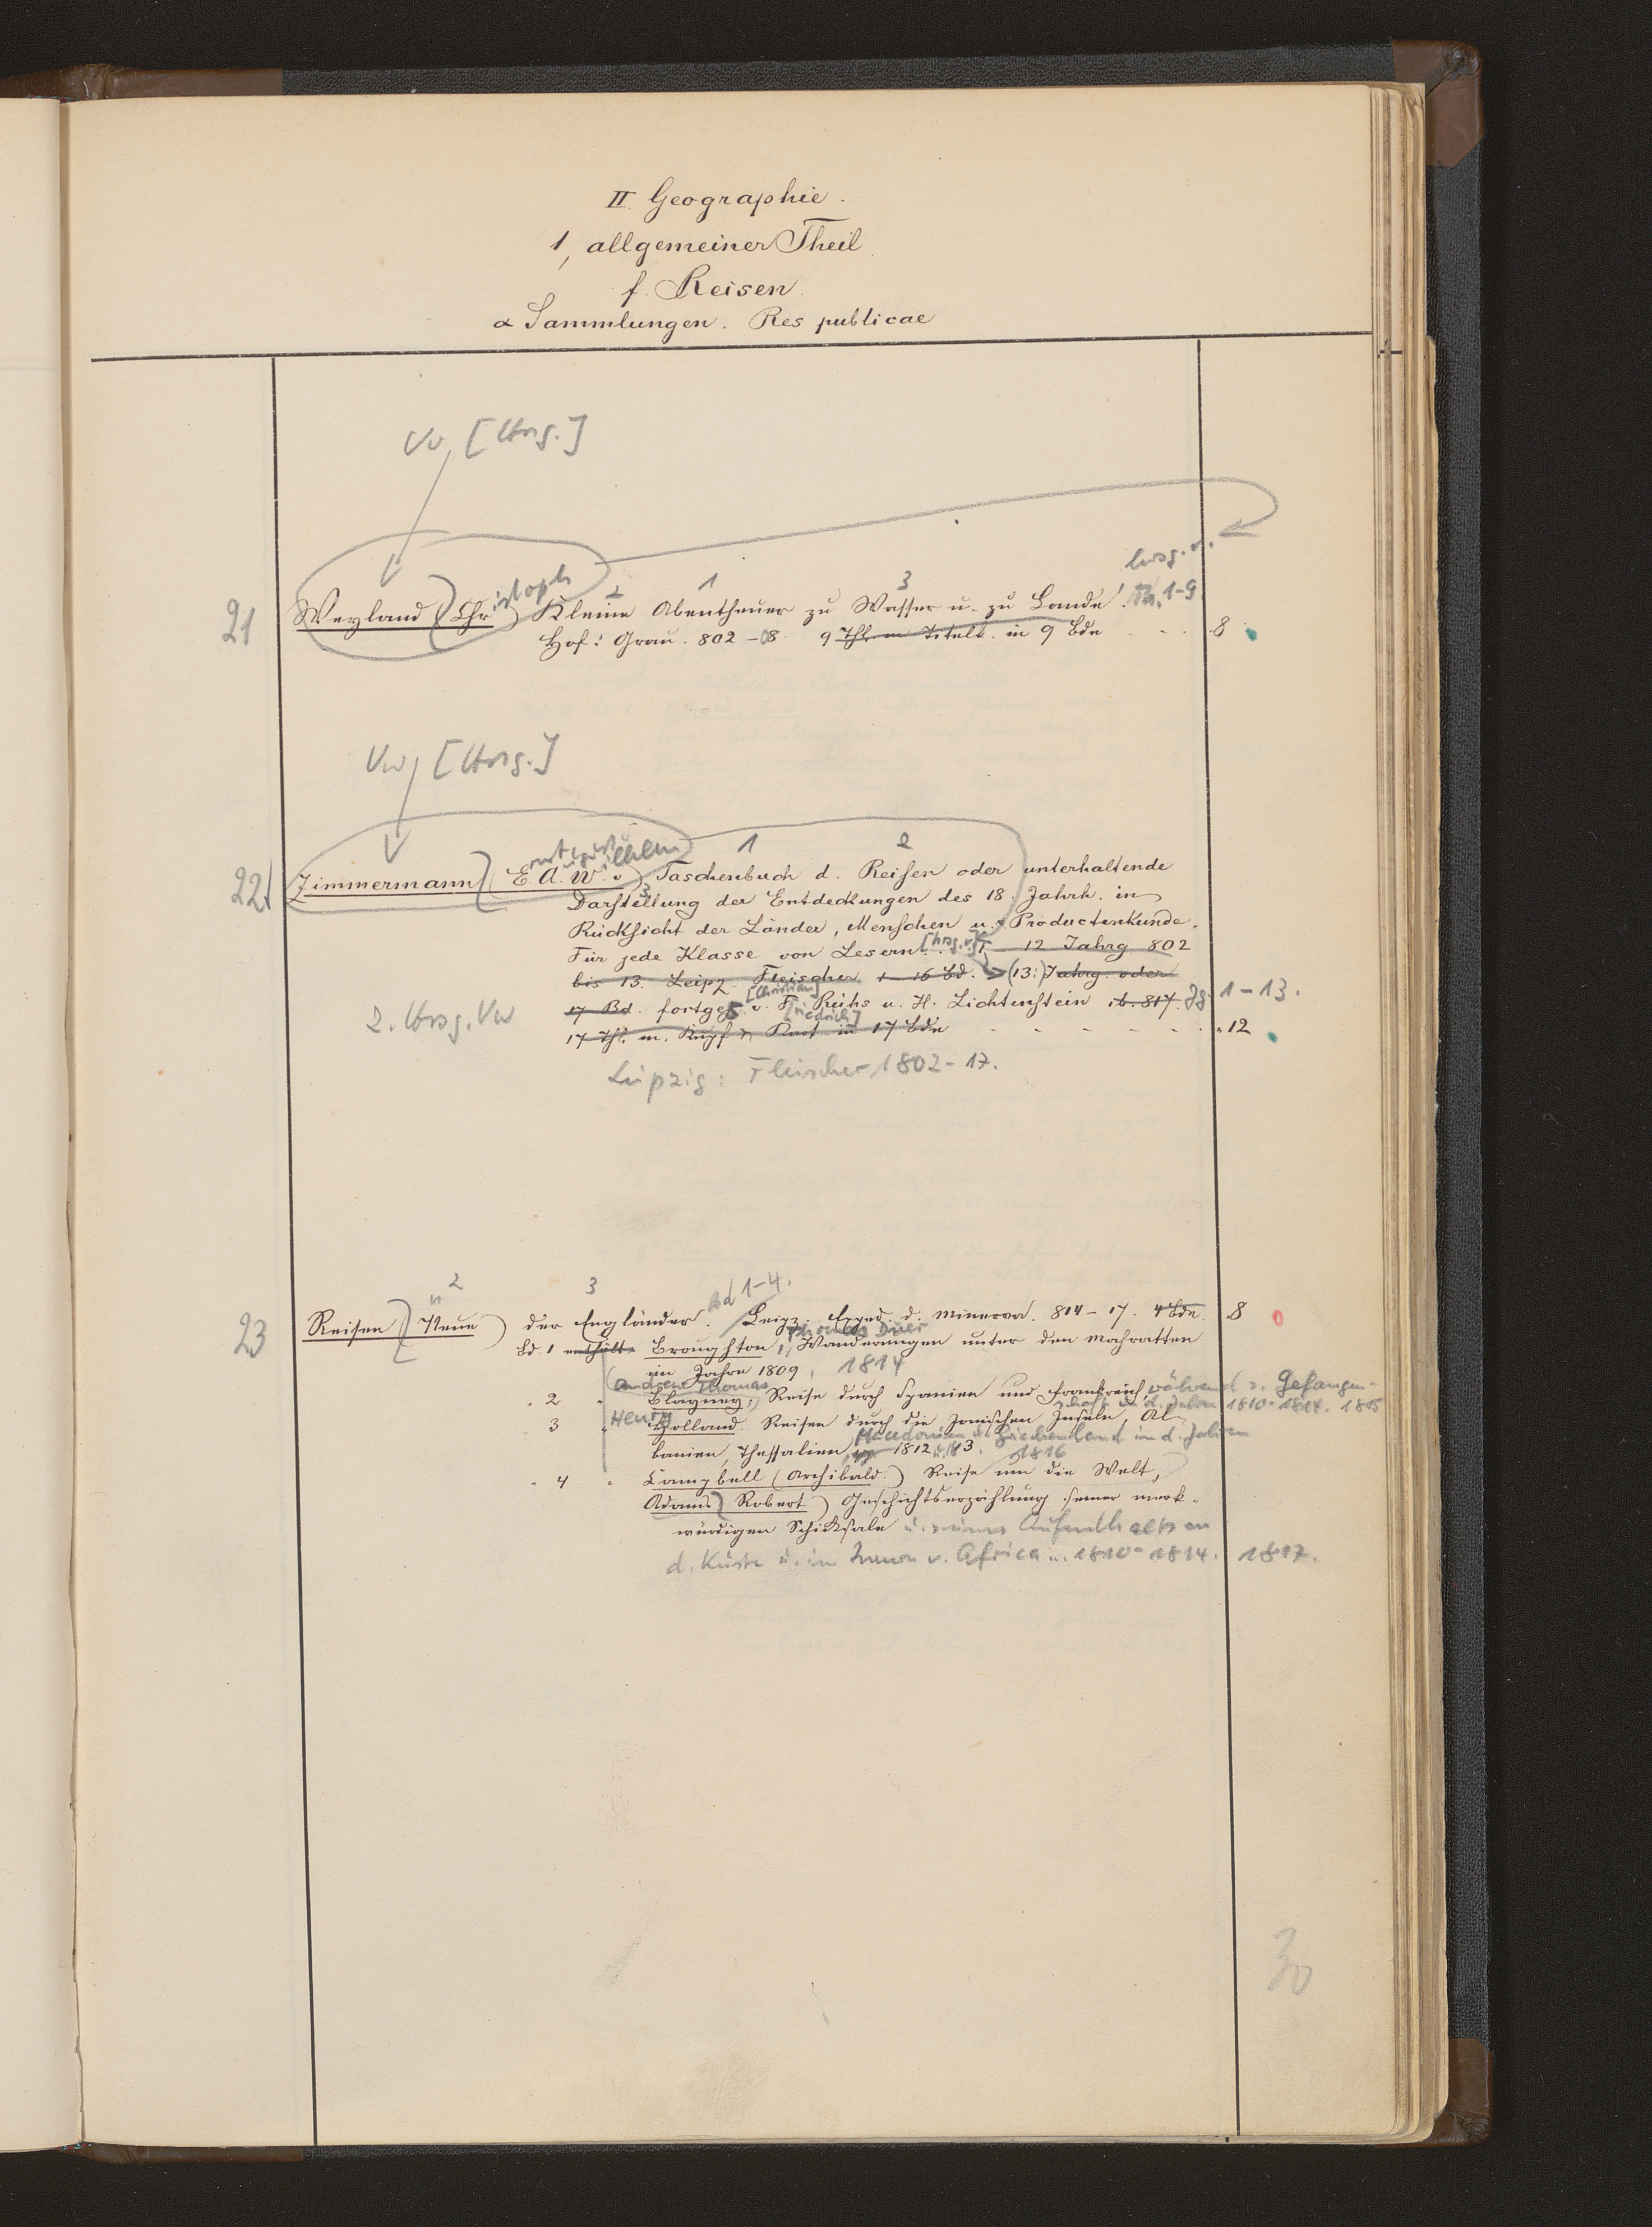 II. Geographie.
1, allgemeiner Theil
f. Reisen.
α Sammlungen. Res publicae
Vw [Hrsg.]
hrsg. v.
istoph 2 1 3
21 Weyland (Chr.) Kleine Abentheuer zu Wasser u. zu Lande. Th. 1-9
Hof: Grau. 802-08. 9 Thle m Titelk. in 9 Bde 8
Vw [Hrsg.]
rnst ugust ilhelm 1 2
22 Zimmermann (E. A. W. v.) Taschenbuch d. Reisen oder unterhaltende
3
Darstellung der Entdeckungen des 18. Jahrh. in
Rücksicht der Länder, Menschen u. Productenkunde.
Für jede Klasse von Lesern. [hrsg. v.] 1 - 12 Jahrg 802
bis 13. Leipz. Fleischer 1-16 Bd. (13.) Jahrg. oder
[Christian]
17 Bd. fortges. v. F. Rühs u. H. Lichtenstein b. 817. Jg. 1-13.
[riedrich]
2. Hrsg. Vw
17 Thl. m. Kupf u. Kart in 17 Bde " 12
Leipzig: Fleischer 1802-17.
2 3 Bd 1-4.
23 Reisen (Neue) der Engländer. Leipz. Exped. d. Minerva. 814-17. 4 Bde. 8
Thomas Duer
Bd. 1 enthält: Broughton, Wanderungen unter den Mahratten
im Jahre 1809, 1814
Andrew Thomas
" 2 " Blayney, Reise durch Spanien und Frankreich, während s. Gefangen-
schaft in d. Jahren 1810-1814. 1815
Henry
" 3 " Holland. Reisen durch die Jonischen Inseln, Al-
Macedonien u. Griechenland in d. Jahren
banien, Thessalien, 1812 u. 13. 1816
" 4 " Campbell (Archibald.) Reise um die Welt,
Adams (Robert) Geschichtserzählung seiner merk-
würdigen Schicksale u. seines Aufenthalts an
d. Küste u. im Innern v. Africa .. 1810-1814. 1817.
30